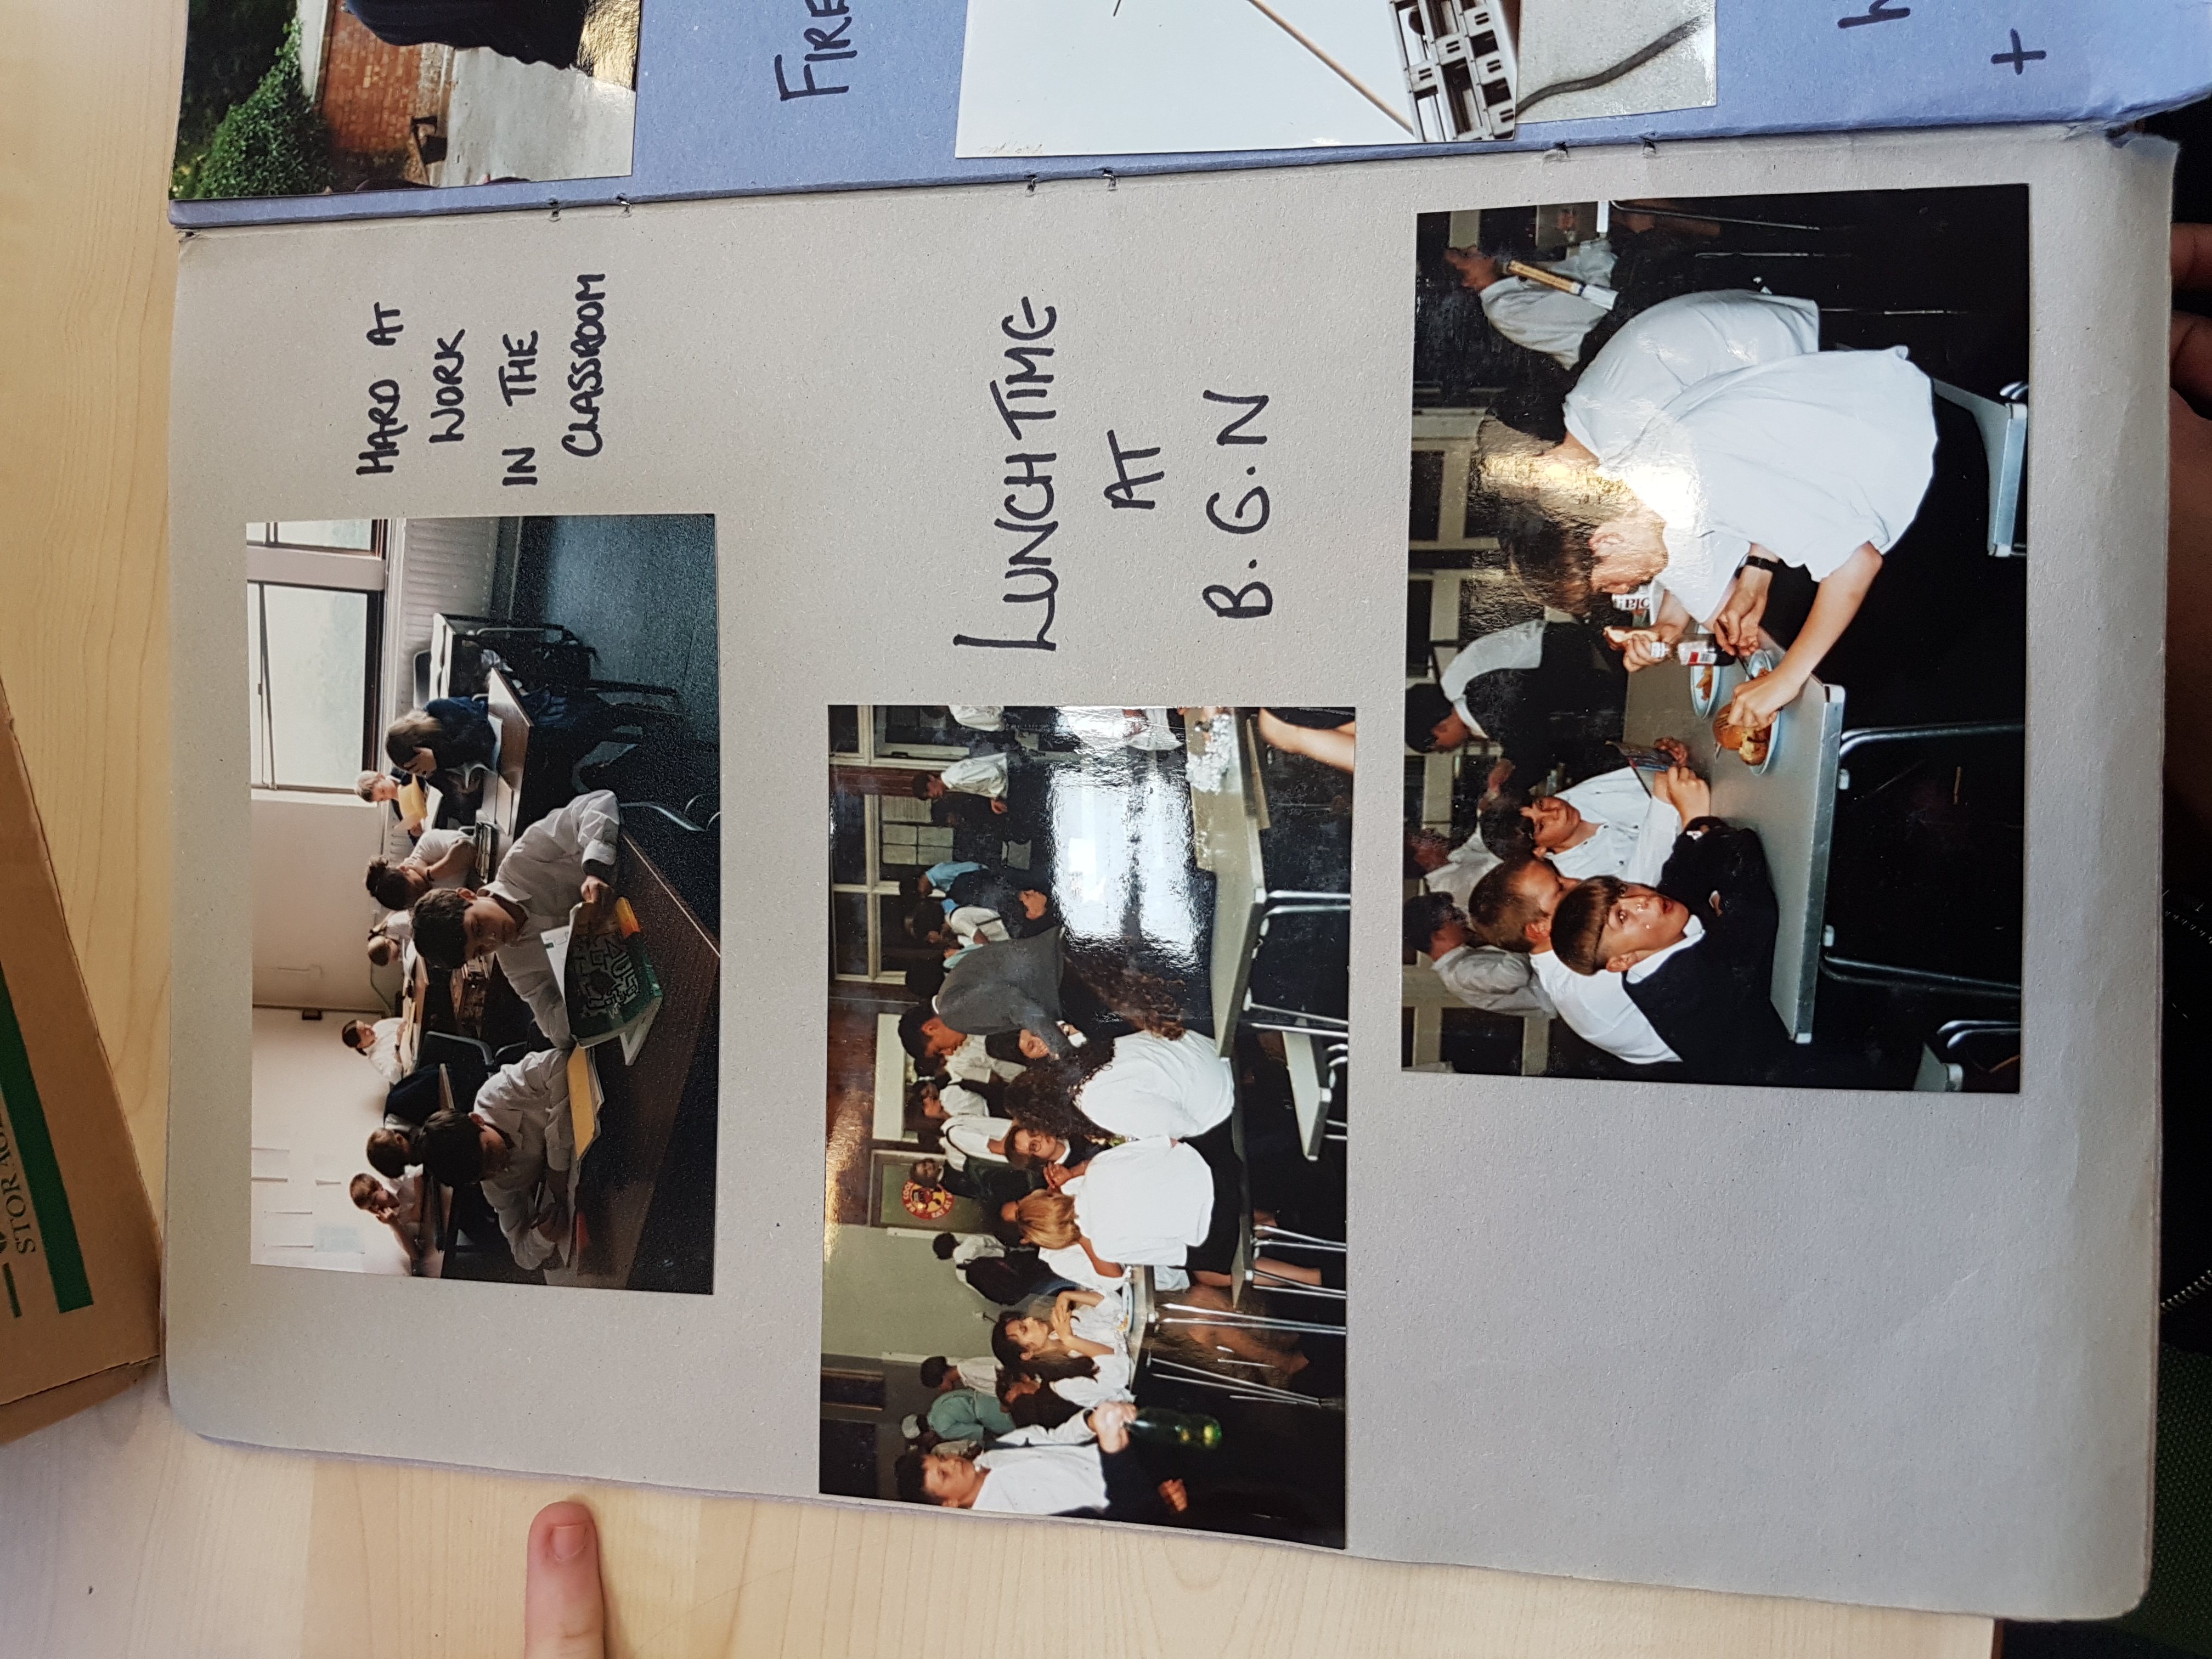 STORAGE
HARD AT
WORK
IN THE
CLASSROOM
LUNCHTIME
AT
B.G.N
FIRE
+